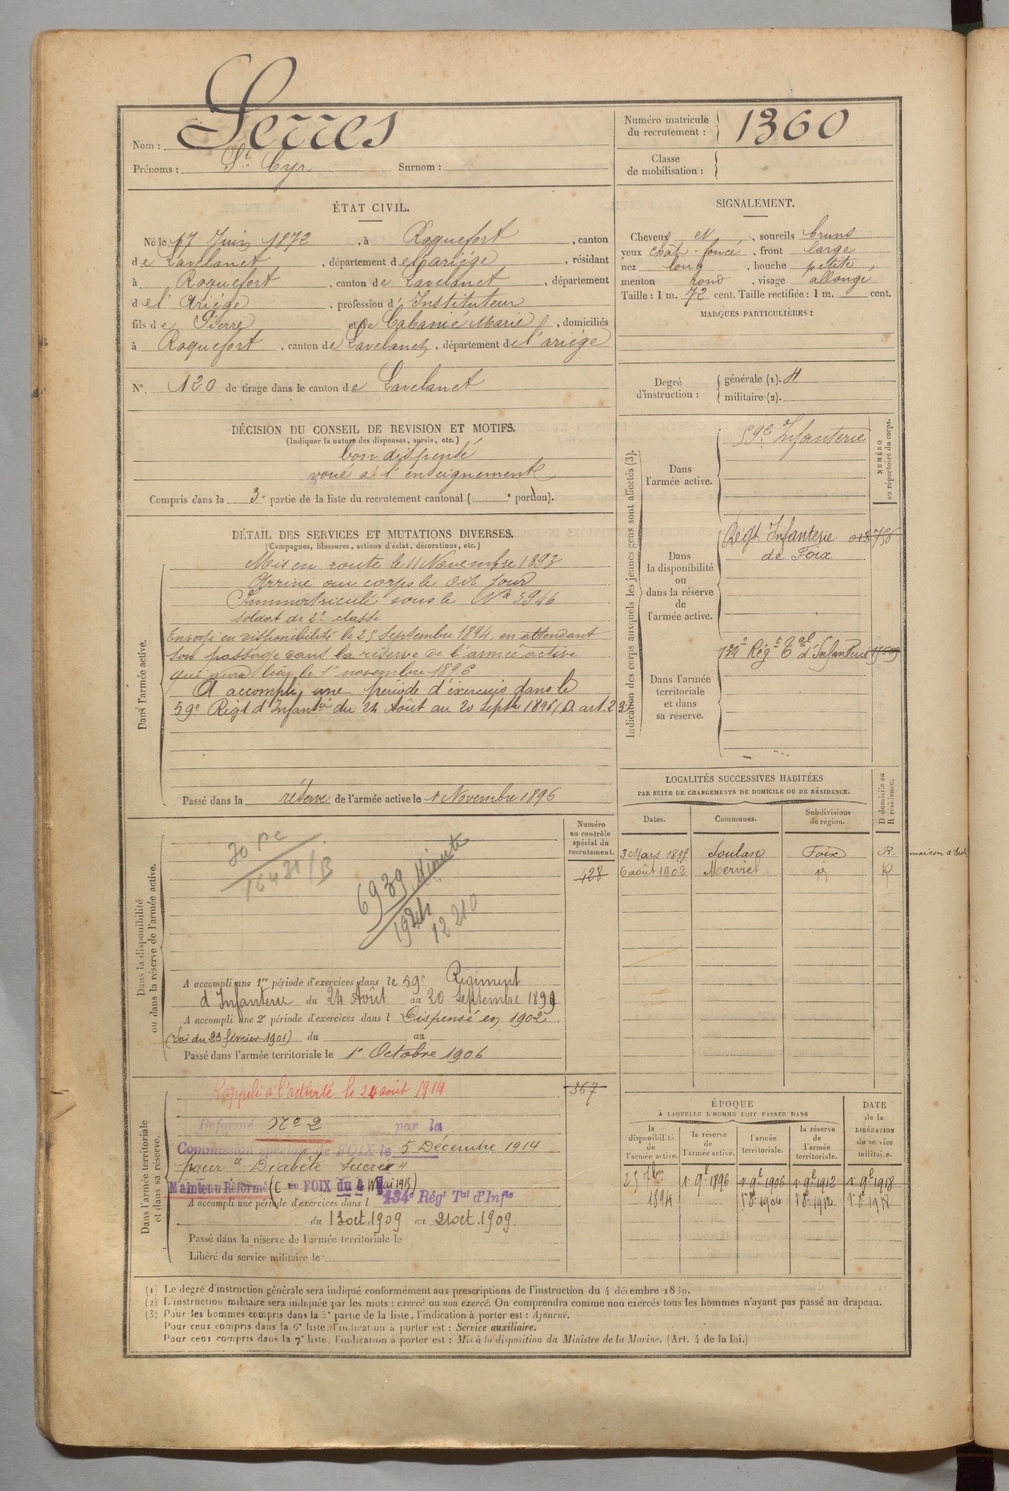 Nom : Serres
Prénoms : St Cyr Surnom :
Numéro matricule du recrutement : 1360
Classe de mobilisation :
ÉTAT CIVIL.
Né le 17 Juin 1872, à Roquefort, canton
de Lavelanet, département de l'ariége, résidant
à Roquefort, canton de Lavelanet, département
de l'Ariége, profession d'Instituteur
fils de Pierre et de Cabanié Marie, domiciliés
à Roquefort, canton de Lavelanet, département de l'ariége
N° 120 de tirage dans le canton de Lavelanet
SIGNALEMENT.
Cheveux et, sourcils bruns
yeux chât-foncé, front large
nez long, bouche petite,
menton rond, visage allongé
Taille : 1 m. 72 cent. Taille rectifiée : 1 m. cent.
MARQUES PARTICULIÈRES :
Degré d'instruction : générale (1). 4
militaire (2).
DÉCISION DU CONSEIL DE REVISION ET MOTIFS.
(Indiquer la nature des dispenses, sursis, etc.)
bon dispensé
voué à l'enseignement
Compris dans la 3e partie de la liste du recrutement cantonal ( e portion).
DÉTAIL DES SERVICES ET MUTATIONS DIVERSES.
(Campagnes, blessures, actions d'éclat, décorations, etc.)
Dans l'armée active.
Mis en route le 11 Novembre 1893
Arrivé au corps le dit Jour
Immatriculé sous le N° 3946
soldat de 2e classe
Envoyé en disponibilité le 25 Septembre 1894, en attendant
son passage dans la réserve de l'armée active
qui aura lieu le 1er novembre 1896
A accompli une période d'exercices dans le
59e Régt d'Infantie du 24 Août au 20 Septbre 1896 (D. art. 23)
Passé dans la réserve de l'armée active le 1 Novembre 1896
Indication des corps auxquels les jeunes gens sont affectés (3).
NUMÉRO au répertoire du corps.
Dans l'armée active.
59e Infanterie
Dans la disponibilité ou dans la réserve de l'armée active.
Régt Infanterie
de Foix
Dans l'armée territoriale et dans sa réserve.
134e Régt Tal d'Infanterie
LOCALITÉS SUCCESSIVES HABITÉES
PAR SUITE DE CHANGEMENTS DE DOMICILE OU DE RÉSIDENCE.
Dates. Communes. Subdivisions de région. D domicile ou R résidence.
Soulan Foix R. maison d'école
6 août 1902 Merviel id R
Numéro au contrôle spécial du recrutement.
428
Dans la disponibilité ou dans la réserve de l'armée active.
16431/B
6939 Minute
12210
A accompli une 1re période d'exercices dans le 59e Régiment
d'Infanterie du 24 Août au 20 Septembre 1899
A accompli une 2e période d'exercices dans l Dispensé en 1902
(Loi du 23 février 1901) du au
Passé dans l'armée territoriale le 1er Octobre 1906
Dans l'armée territoriale et dans sa réserve.
367
Rappelé à l'activité le 24 août 1914
Réformé N° 2 par la
Commission spéciale de FOIX le 5 Décembre 1914
pour "Diabète sucré"
Maintenu Réformé (C on FOIX du 4 Mai 1915)
A accompli une période d'exercices dans l 134e Régt Tal d'Infie
du 13 oct. 1909 au 21 oct. 1909
Passé dans la réserve de l'armée territoriale le
Libéré du service militaire le
ÉPOQUE
À LAQUELLE L'HOMME DOIT PASSER DANS
la disponibilité de l'armée active.
la réserve de l'armée active.
l'armée territoriale.
la réserve de l'armée territoriale.
DATE de la LIBÉRATION du service militaire.
25 7bre 1894 1er 9bre 1896 1er 9bre 1906 1er 9bre 1912 1er 9bre 1918
1er 8bre 1906 1er 8bre 1912 1er 8bre 1918
(1) Le degré d'instruction générale sera indiqué conformément aux prescriptions de l'instruction du 4 décembre 1889.
(2) L'instruction militaire sera indiquée par les mots : exercé ou non exercé. On comprendra comme non exercés tous les hommes n'ayant pas passé au drapeau.
(3) Pour les hommes compris dans la 5e partie de la liste, l'indication à porter est : Ajourné.
Pour ceux compris dans la 6e liste, l'indication à porter est : Service auxiliaire.
Pour ceux compris dans la 7e liste, l'indication à porter est : Mis à la disposition du Ministre de la Marine. (Art. 4 de la loi.)